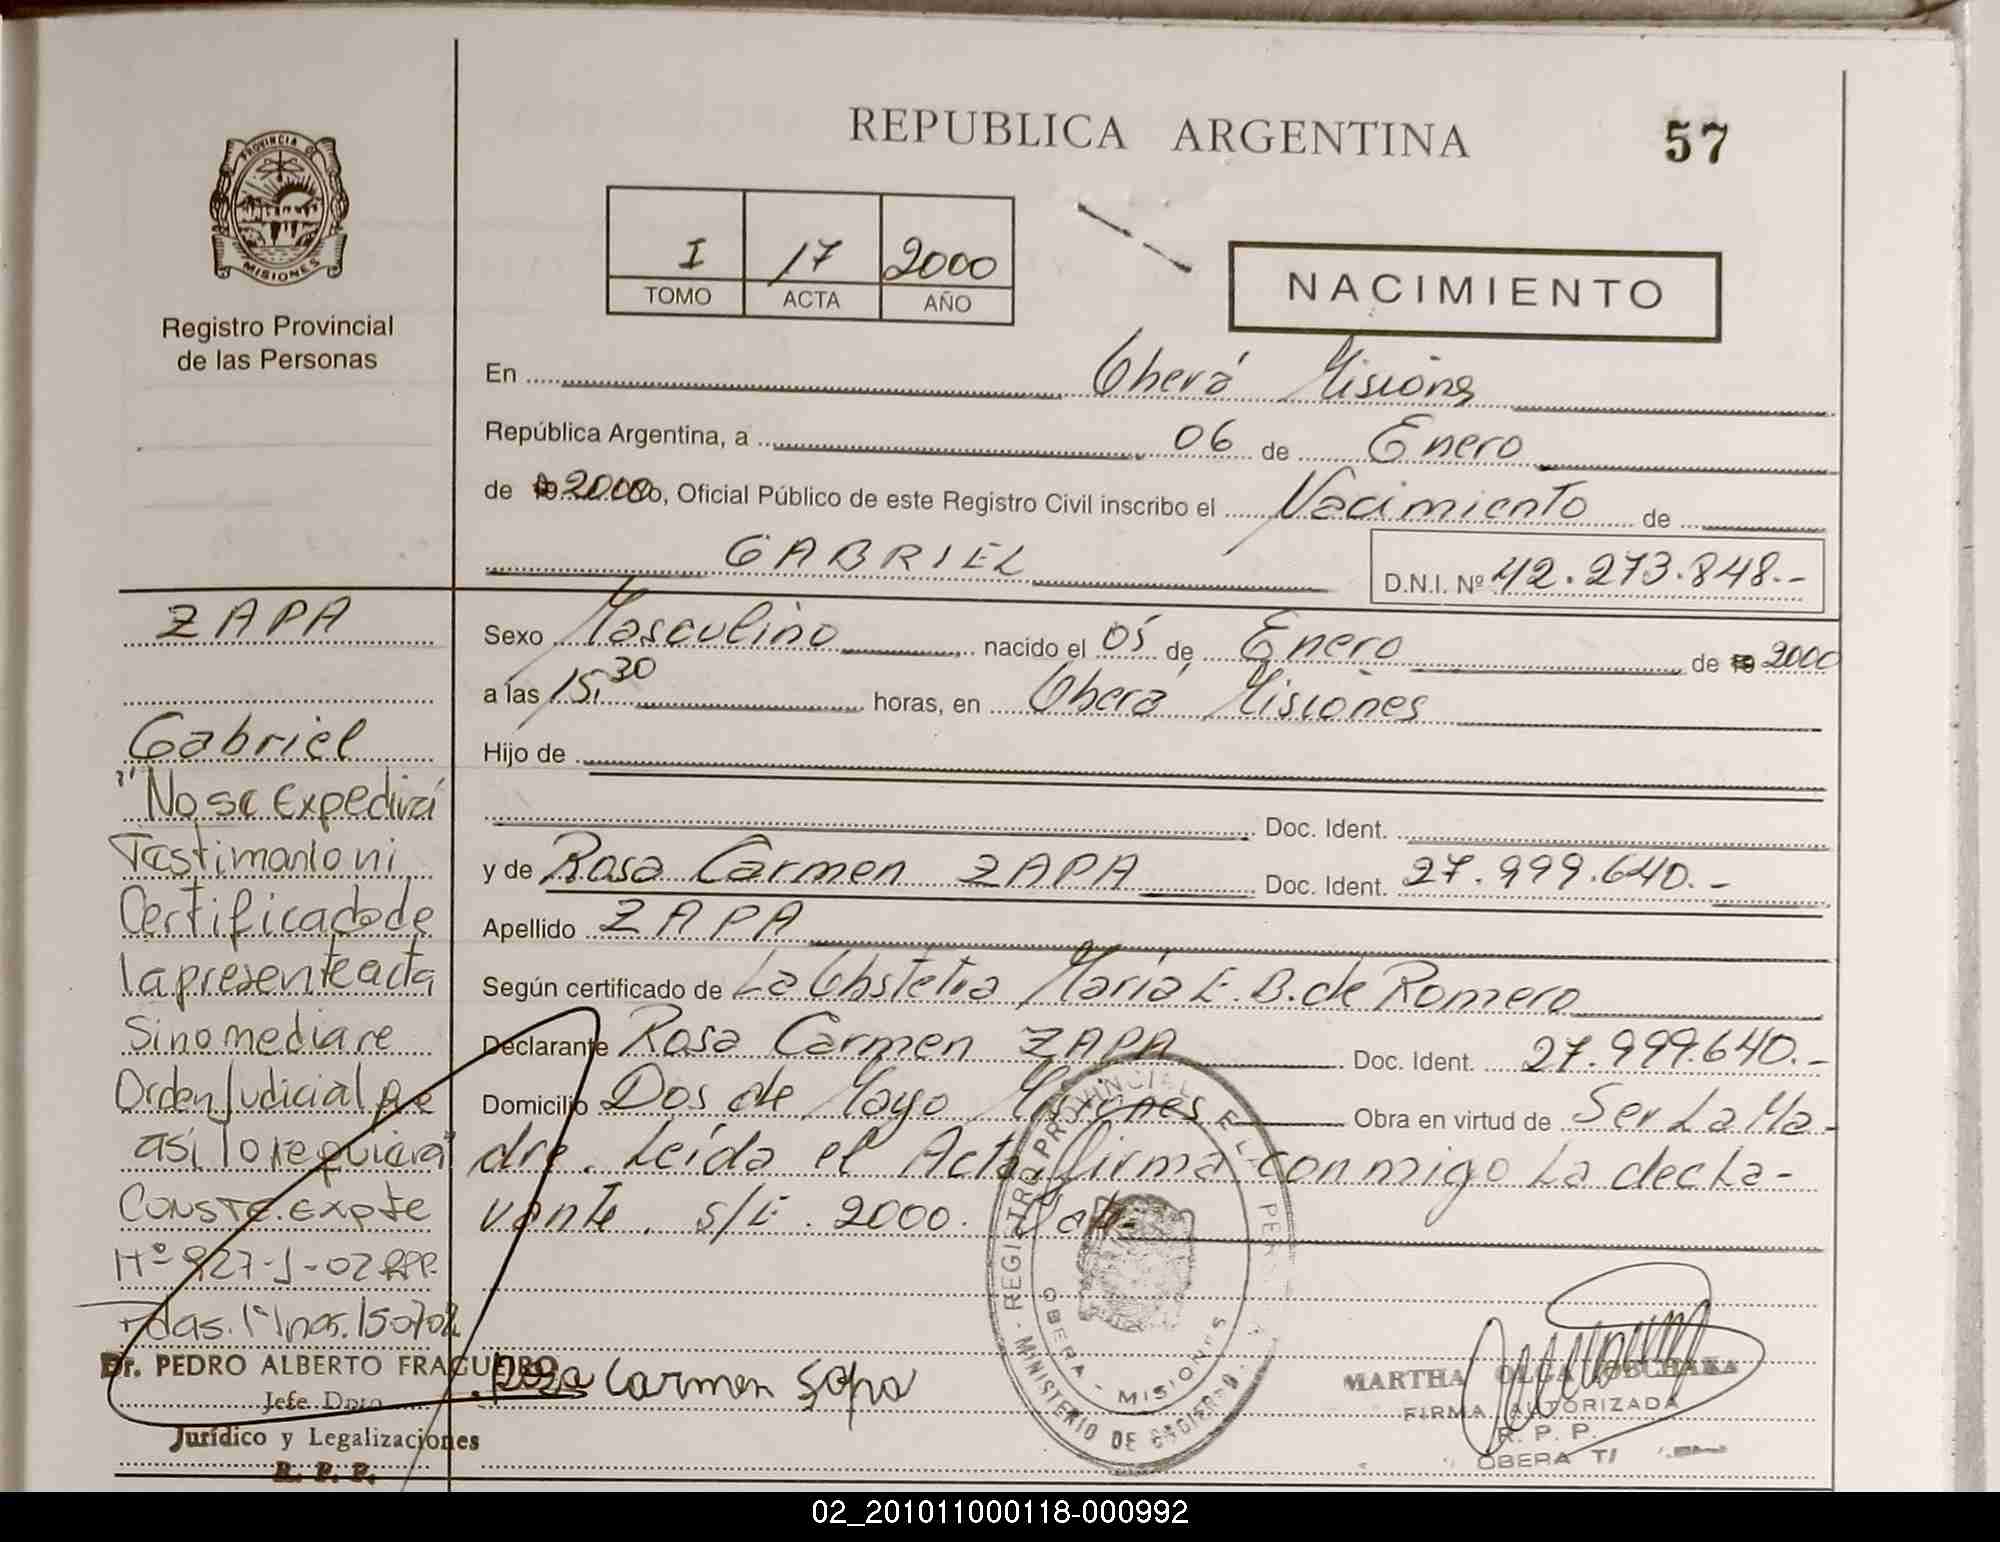 REPUBLICA ARGENTINA
57
PROVINCIA DE
MISIONES
Registro Provincial
de las Personas
I 17 2000
TOMO ACTA AÑO
NACIMIENTO
En Oberá Misiones
República Argentina, a 06 de Enero
de 2000 yo, Oficial Público de este Registro Civil inscribo el Nacimiento de
GABRIEL
D.N.I. Nº 42.273.848.-
Sexo Masculino nacido el 05 de Enero de 2000
a las 15,30 horas, en Oberá Misiones
Hijo de
Doc. Ident.
y de Rosa Carmen ZAPA Doc. Ident. 27.999.640.-
Apellido ZAPA
Según certificado de La Obstetra María E. B. de Romero
Declarante Rosa Carmen ZAPA Doc. Ident. 27.999.640.-
Domicilio Dos de Mayo Misiones Obra en virtud de Ser La Ma-
dre. Leída el Acta firma conmigo La decla-
rante. s/E. 2000. Vale.
Rosa Carmen Sapa
ZAPA
Gabriel
"No se Expedirá
Testimonio ni
Certificado de
la presente acta
Sino mediare
Orden Judicial que
así lo requiera"
Conste. Expte
Nº 927-J-02 RPP.
Pdas. 1º Inos. 150702
Dr. PEDRO ALBERTO FRAGUEIRO
Jefe Dpto
Jurídico y Legalizaciones
R. P. P.
REGISTRO PROVINCIAL DE L. PER
MINISTERIO DE GOBIERNO
OBERA - MISIONES
MARTHA OLGA
FIRMA AUTORIZADA
R. P. P.
OBERA
02_201011000118-000992